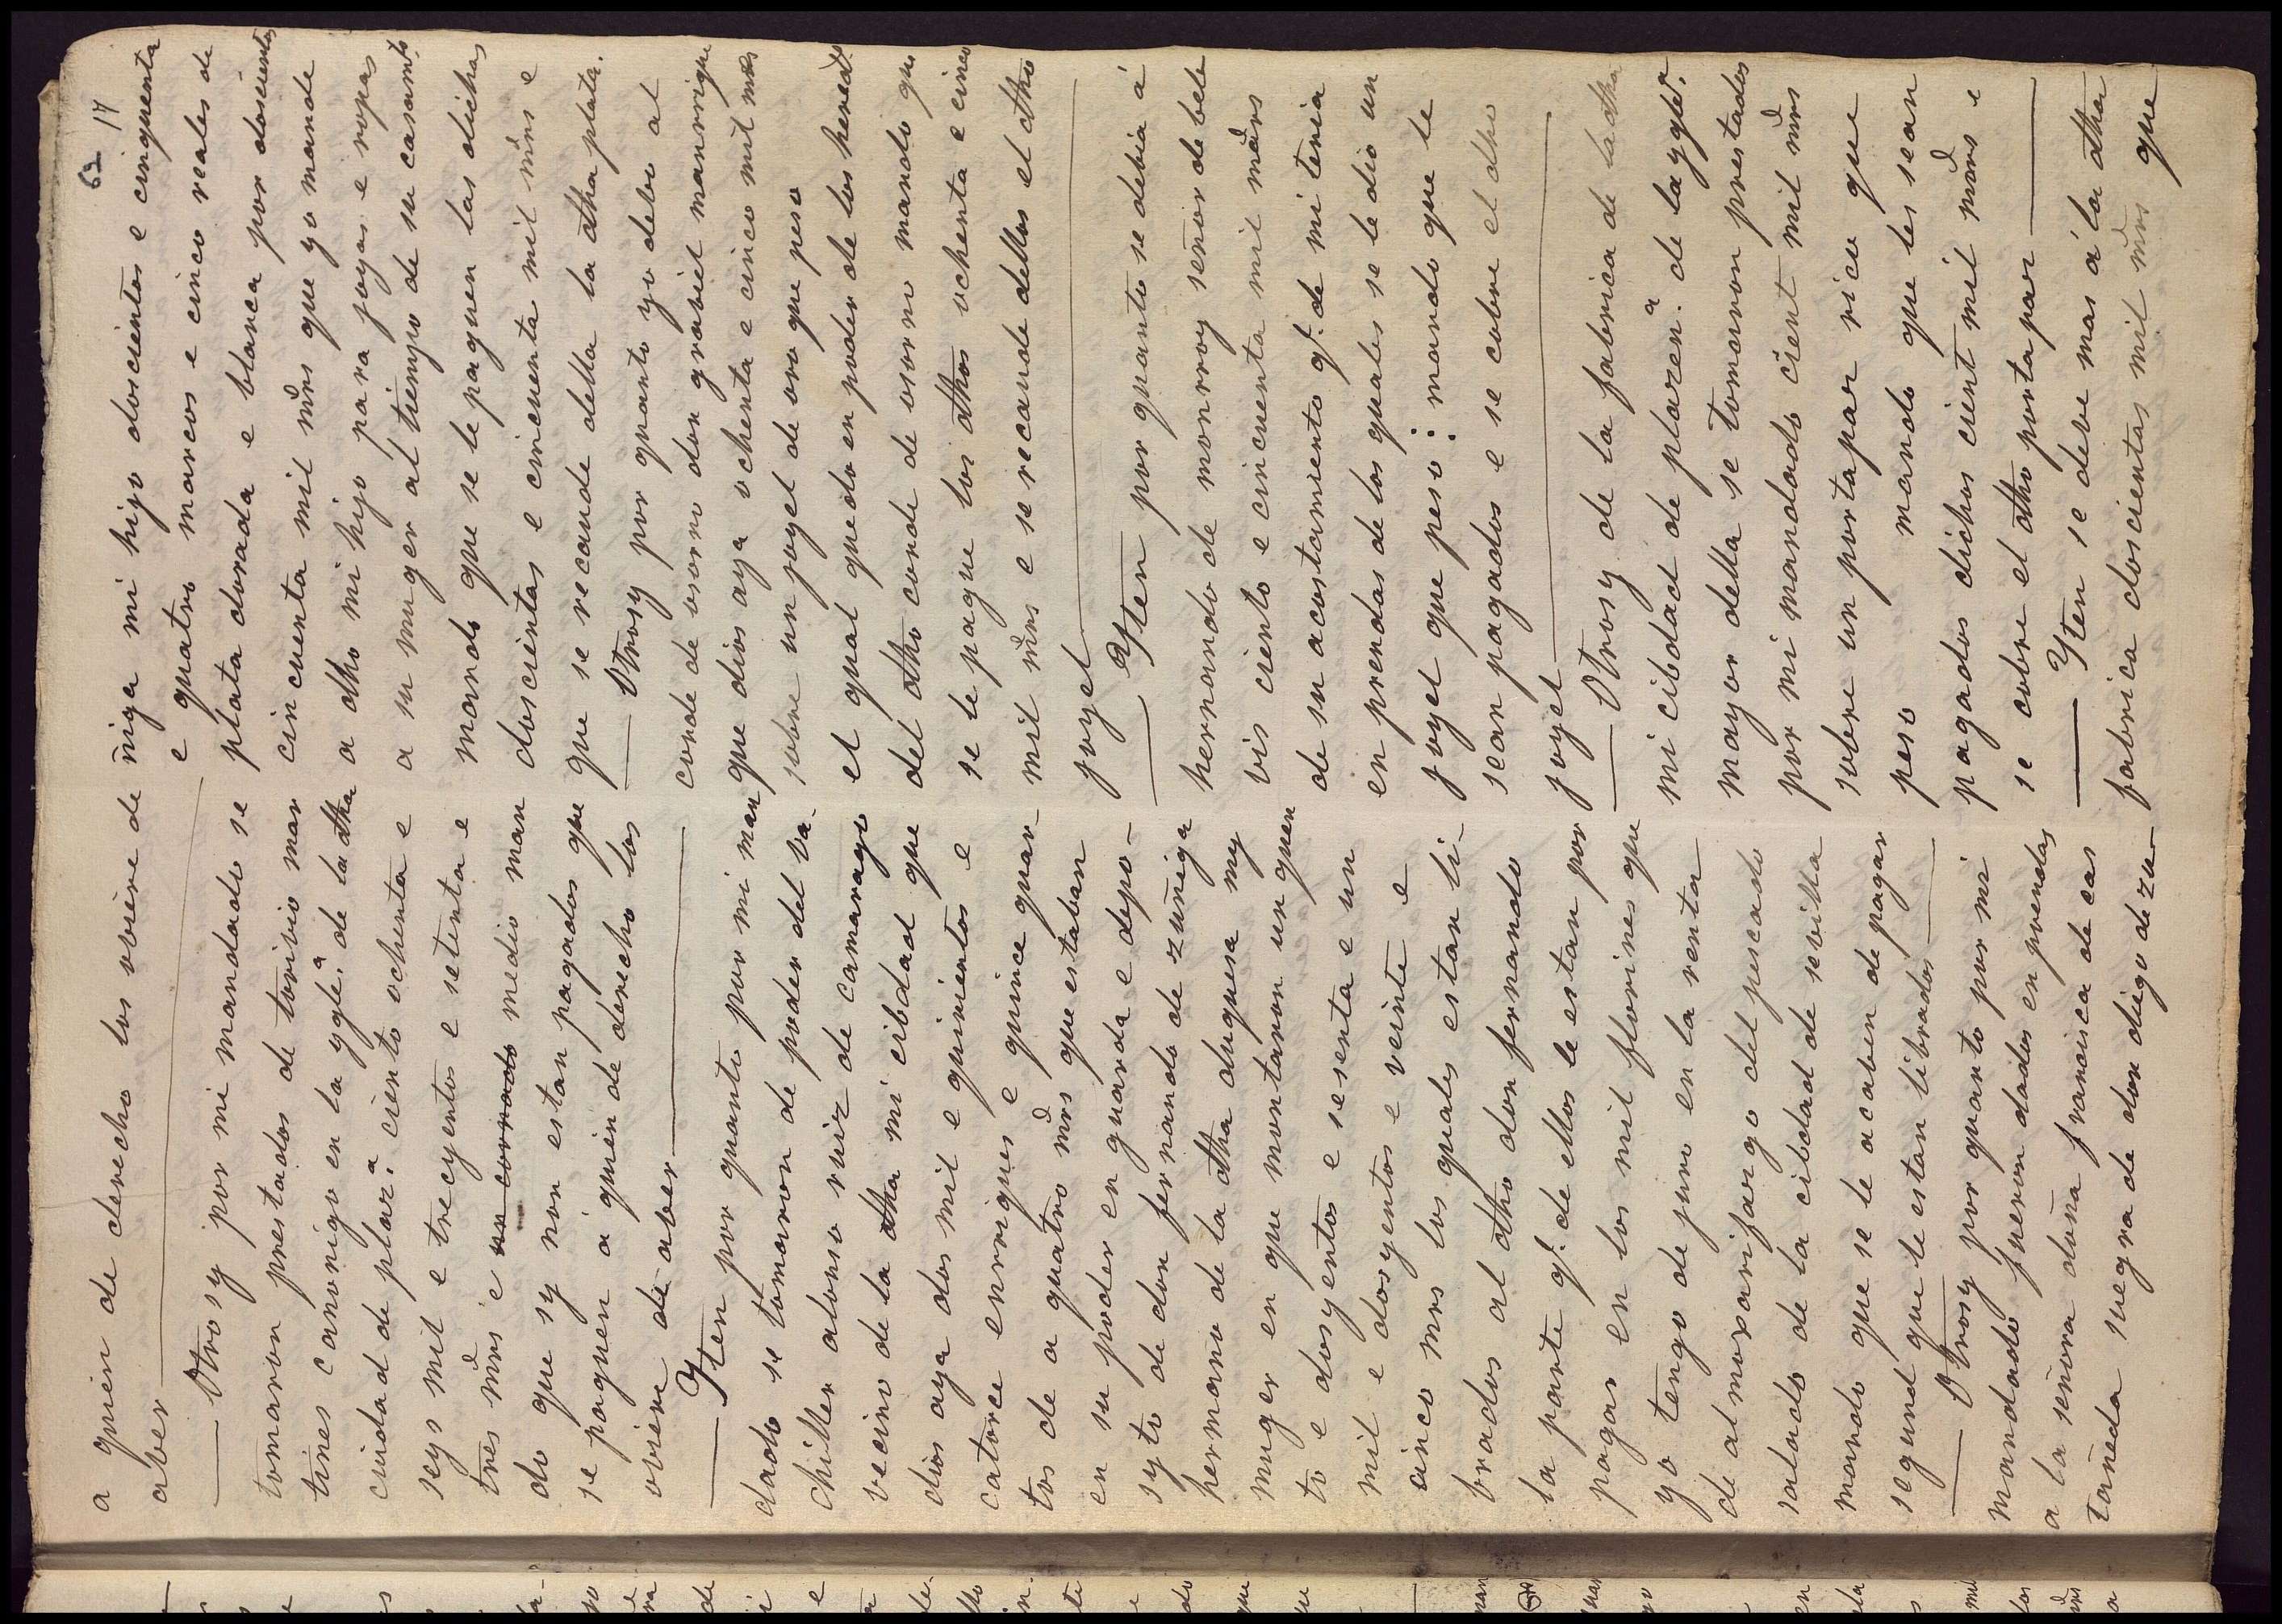 62 17
a quien de derecho los oviere de
aber
Otro sy por mi mandado se
tomaron prestados de torivio mar
tines canonigo en la ygleª. de la dha
ciudad de plazª. ciento ochenta e
seys mil e trecyentos e setenta e
tres mrs e un cornado medio man
do que sy non estan pagados que
se paguen á quien de derecho los
oviere de aber
Yten por quanto por mi man
dado se tomaron de poder del ba-
chiller alonso ruiz de camarago
vecino de la dha mi cibdad que
dios aya dos mil e quinientos e
catorce enrriques e quince quar-
tos de a quatro mrs que estaban
en su poder en guarda e depo-
syto de don fernando de zuñiga
hermano de la dha duquesa my
muger en que montaron un quen
to e dosyentos e sesenta e un
mil e dosyentos e veinte e
cinco mrs los quales estan li-
brados al dho don fernando
la parte qˡ. de ellos le estan por
pagar en los mil florines que
yo tengo de juro en la renta
de almoxarifazgo del pescado
salado de la cibdad de sevilla
mando que se le acaben de pagar
segund que le estan librados
Otrosy por quanto por mi
mandado fueron dados en prendas
a la señora doña francisca de cas
tañeda suegra de don diego de zu-
ñiga mi hijo doscientos e cinquenta
e quatro marcos e cinco reales de
plata dorada e blanca por doscientos
cincuenta mil mrs que yo mande
a dho mi hijo para joyas e ropas
a su muger al tiempo de su casamtº.
mando que se le paguen las dichas
doscientas e cincuenta mil mrs e
que se recaude della la dha plata.
Otrosy por quanto yo debo al
conde de osorno don graviel manrrique
que dios aya ochenta e cinco mil mrs
sobre un joyel de oro que peso
el qual quedo en poder de los heredºˢ.
del dho conde de osorno mando que
se le pague los dhos ochenta e cinco
mil mrs e se recaude dellos el dho
joyel
Yten por quanto se debia á
hernando de monrroy señor de bel-
vis ciento e cincuenta mil mrs
de su acostamiento qˡ. de mi tenia
en prendas de los quales se le dio un
joyel que peso: mando que le
sean pagados e se cobre el dho
joyel
Otrosy de la fabrica de la dha
mi cibdad de plazenª. de la yglª.
mayor della se tomaron prestados
por mi mandado cient mil mrs
sobre un portapaz rico que
peso mando que les sean
pagados dichos cient mil mrs e
se cobre el dho portapaz
Yten se debe mas á la dha
fabrica doscientas mil mrs que